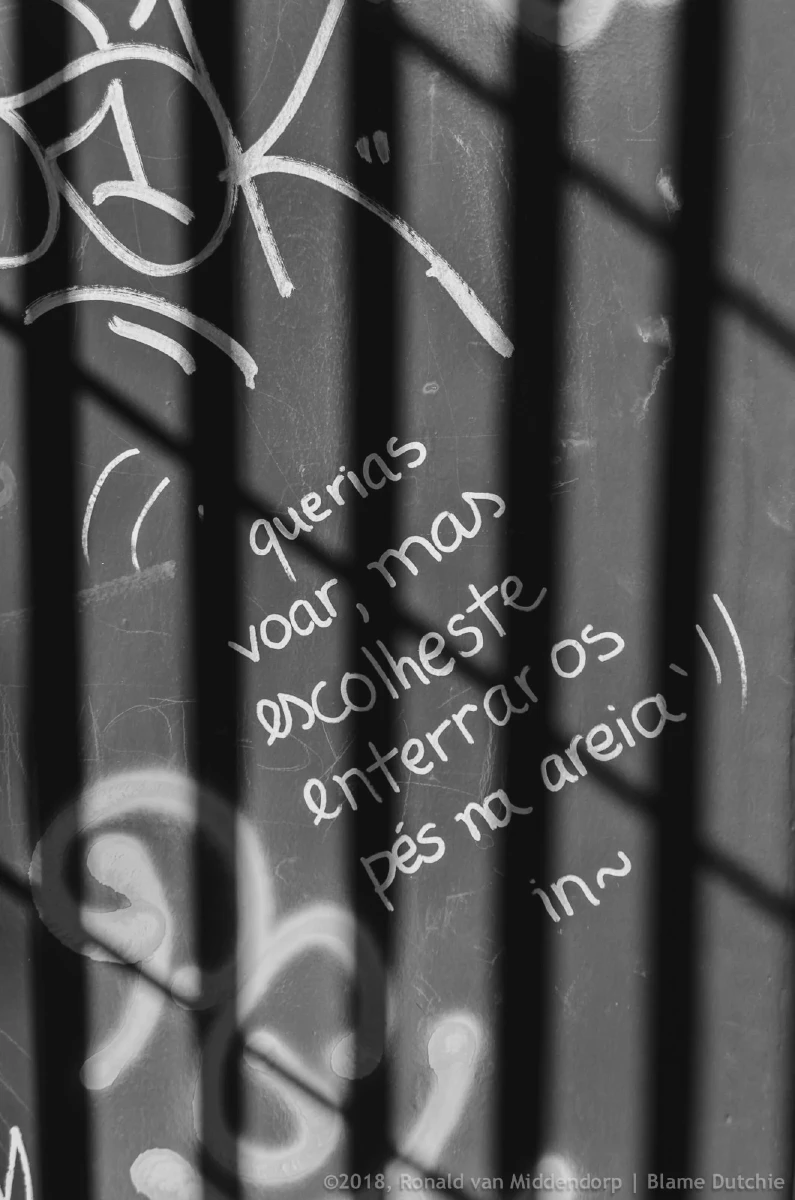 querias
voar, mas
escolheste
enterrar os
pés na areia
in~
©2018, Ronald van Middendorp | Blame Dutchie